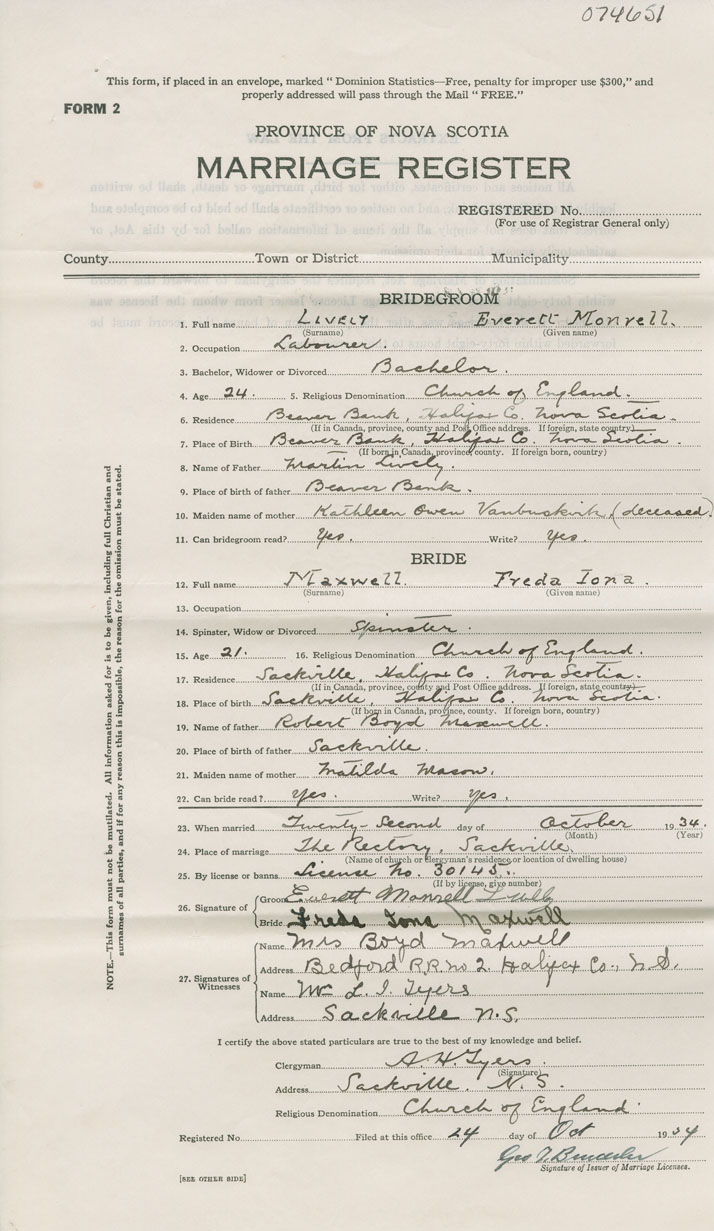 074651
This form, if placed in an envelope, marked " Dominion Statistics—Free, penalty for improper use $300," and
properly addressed will pass through the Mail " FREE."
FORM 2
PROVINCE OF NOVA SCOTIA
MARRIAGE REGISTER
REGISTERED No.
(For use of Registrar General only)
County Town or District Municipality
BRIDEGROOM
1. Full name Lively Everett Monrell.
(Surname) (Given name)
2. Occupation Labourer.
3. Bachelor, Widower or Divorced Bachelor.
4. Age 24. 5. Religious Denomination Church of England.
6. Residence Beaver Bank, Halifax Co. Nova Scotia.
(If in Canada, province, county and Post Office address. If foreign, state country)
7. Place of Birth Beaver Bank, Halifax Co. Nova Scotia.
(If born in Canada, province, county. If foreign born, country)
8. Name of Father Martin Lively.
9. Place of birth of father Beaver Bank.
10. Maiden name of mother Kathleen Owen Vanbuskirk (deceased)
11. Can bridegroom read? Yes. Write? Yes.
BRIDE
12. Full name Maxwell. Freda Iona.
(Surname) (Given name)
13. Occupation
14. Spinster, Widow or Divorced Spinster.
15. Age 21. 16. Religious Denomination Church of England.
17. Residence Sackville, Halifax Co. Nova Scotia.
(If in Canada, province, county and Post Office address. If foreign, state country)
18. Place of birth Sackville, Halifax Co. Nova Scotia.
(If born in Canada, province, county. If foreign born, country)
19. Name of father Robert Boyd Maxwell.
20. Place of birth of father Sackville.
21. Maiden name of mother Matilda Mason.
22. Can bride read? Yes. Write? Yes.
23. When married Twenty Second day of October 1934.
(Month) (Year)
24. Place of marriage The Rectory, Sackville
(Name of church or clergyman's residence, or location of dwelling house)
25. By license or banns License No. 30145.
(If by license, give number)
26. Signature of
Groom Everett Monrell
Bride Freda Iona Maxwell
27. Signatures of Witnesses
Name Mrs Boyd Maxwell
Address Bedford R.R. no 2 Halifax Co., N.S.
Name L. I. Tyers
Address Sackville N.S.
I certify the above stated particulars are true to the best of my knowledge and belief.
Clergyman A. H. Tyers.
(Signature)
Address Sackville. N. S.
Religious Denomination Church of England.
Registered No. Filed at this office 24 day of Oct 1934
Geo
Signature of Issuer of Marriage Licenses.
[SEE OTHER SIDE]
NOTE.—This form must not be mutilated. All information asked for is to be given, including full Christian and
surnames of all parties, and if for any reason this is impossible, the reason for the omission must be stated.